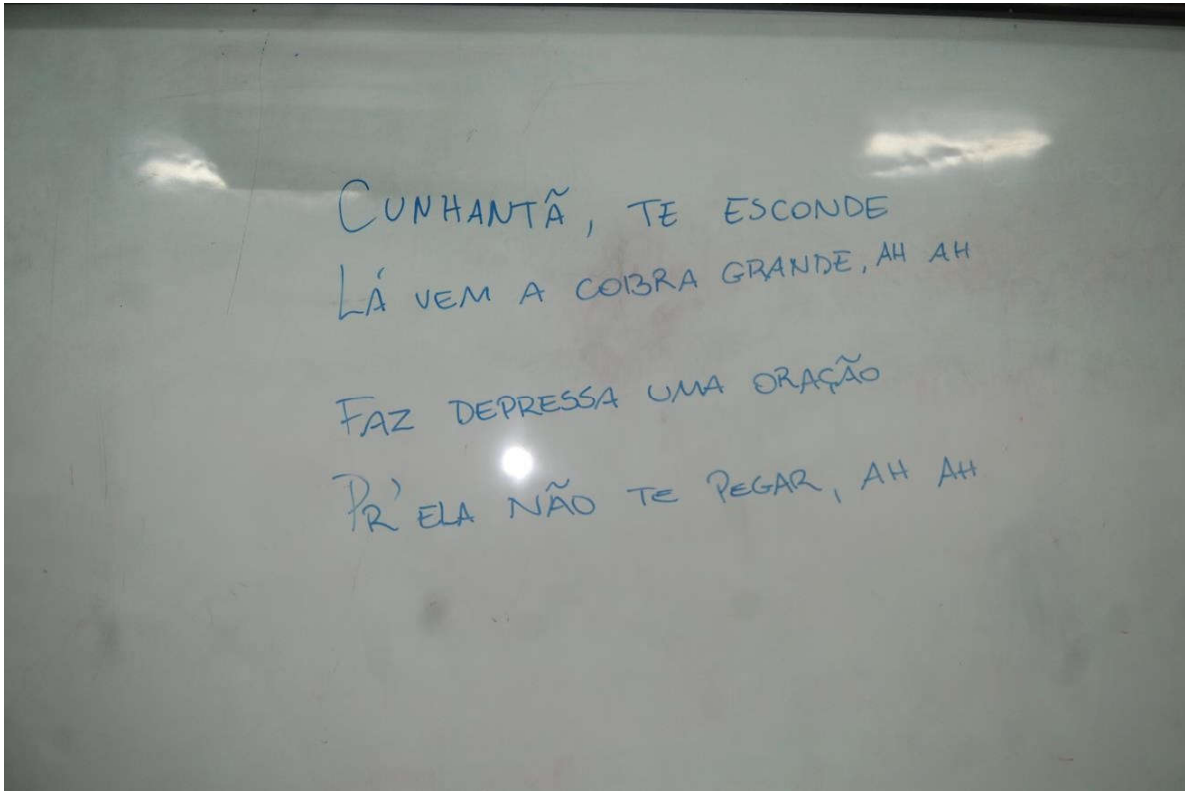 CUNHANTÃ, TE ESCONDE
LÁ VEM A COBRA GRANDE, AH AH
FAZ DEPRESSA UMA ORAÇÃO
PR'ELA NÃO TE PEGAR, AH AH